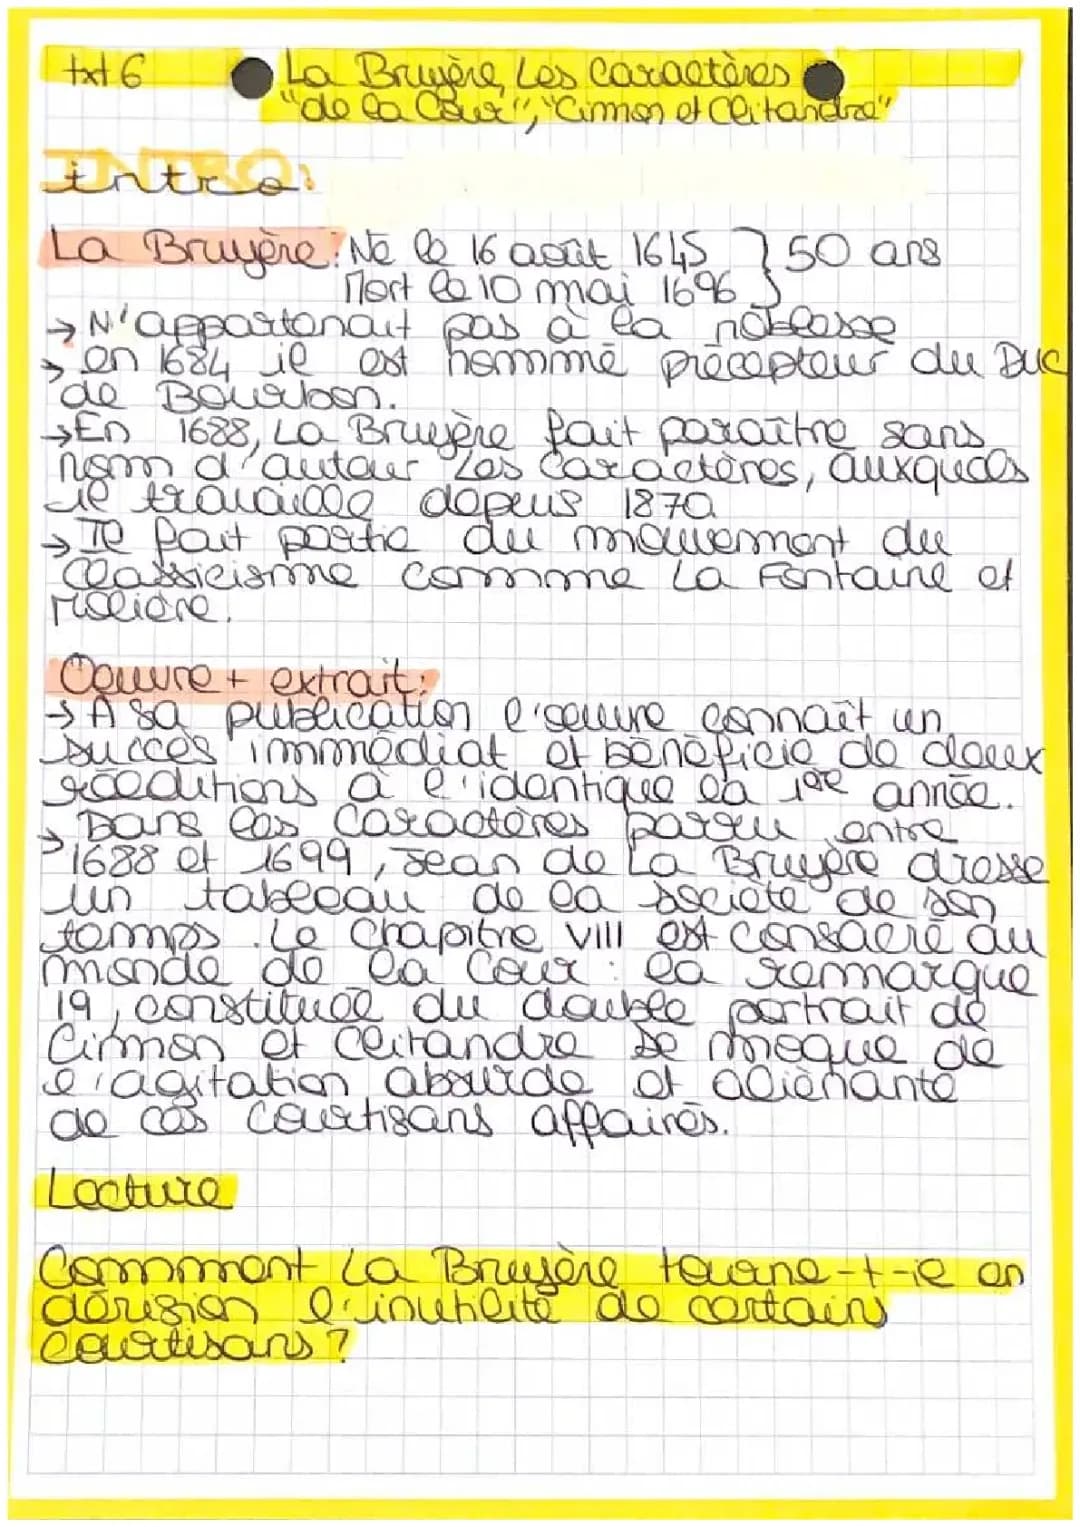 txt 6 La Bruyère, Les Caractères
"de la Cour", "Cimmon et Clitandre"
intro:
La Bruyère: Né le 16 août 1645 } 50 ans
Mort le 10 mai 1696
→ N'appartenait pas à la noblesse
→ en 1684 il est nommé précepteur du Duc
de Bourbon.
→ En 1688, La Bruyère fait paraître sans
nom d'auteur Les Caractères, auxquels
il travaille depuis 1870
→ Il fait partie du mouvement du
Classicisme comme La Fontaine et
Molière.
Oeuvre + extrait:
→ A sa publication l'oeuvre connaît un
succès immédiat et bénéficie de deux
rééditions à l'identique la 1ère année.
→ Dans les Caractères parru entre
1688 et 1699, Jean de La Bruyère dresse
un tableau de la société de son
temps. Le Chapitre VIII est consacré au
monde de la Cour : la remarque
19, constituée du double portrait de
Cimmon et Clitandre se moque de
l'agitation absurde et aliénante
de ces courtisans affairés.
Lecture
Commment La Bruyère tourne-t-il en
dérision l'inutilité de certains
courtisans ?